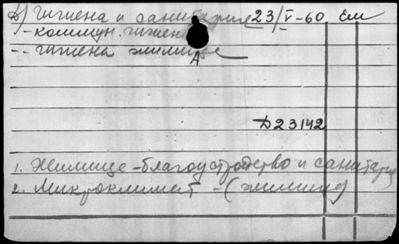 Д) Гигиена и санитария 23/V-60 Ем
- коммун. гигиена
- - гигиена жилища
А
Д23142
1. Жилище - благоустройство и санитария
2. Микроклимат - (жилищ)